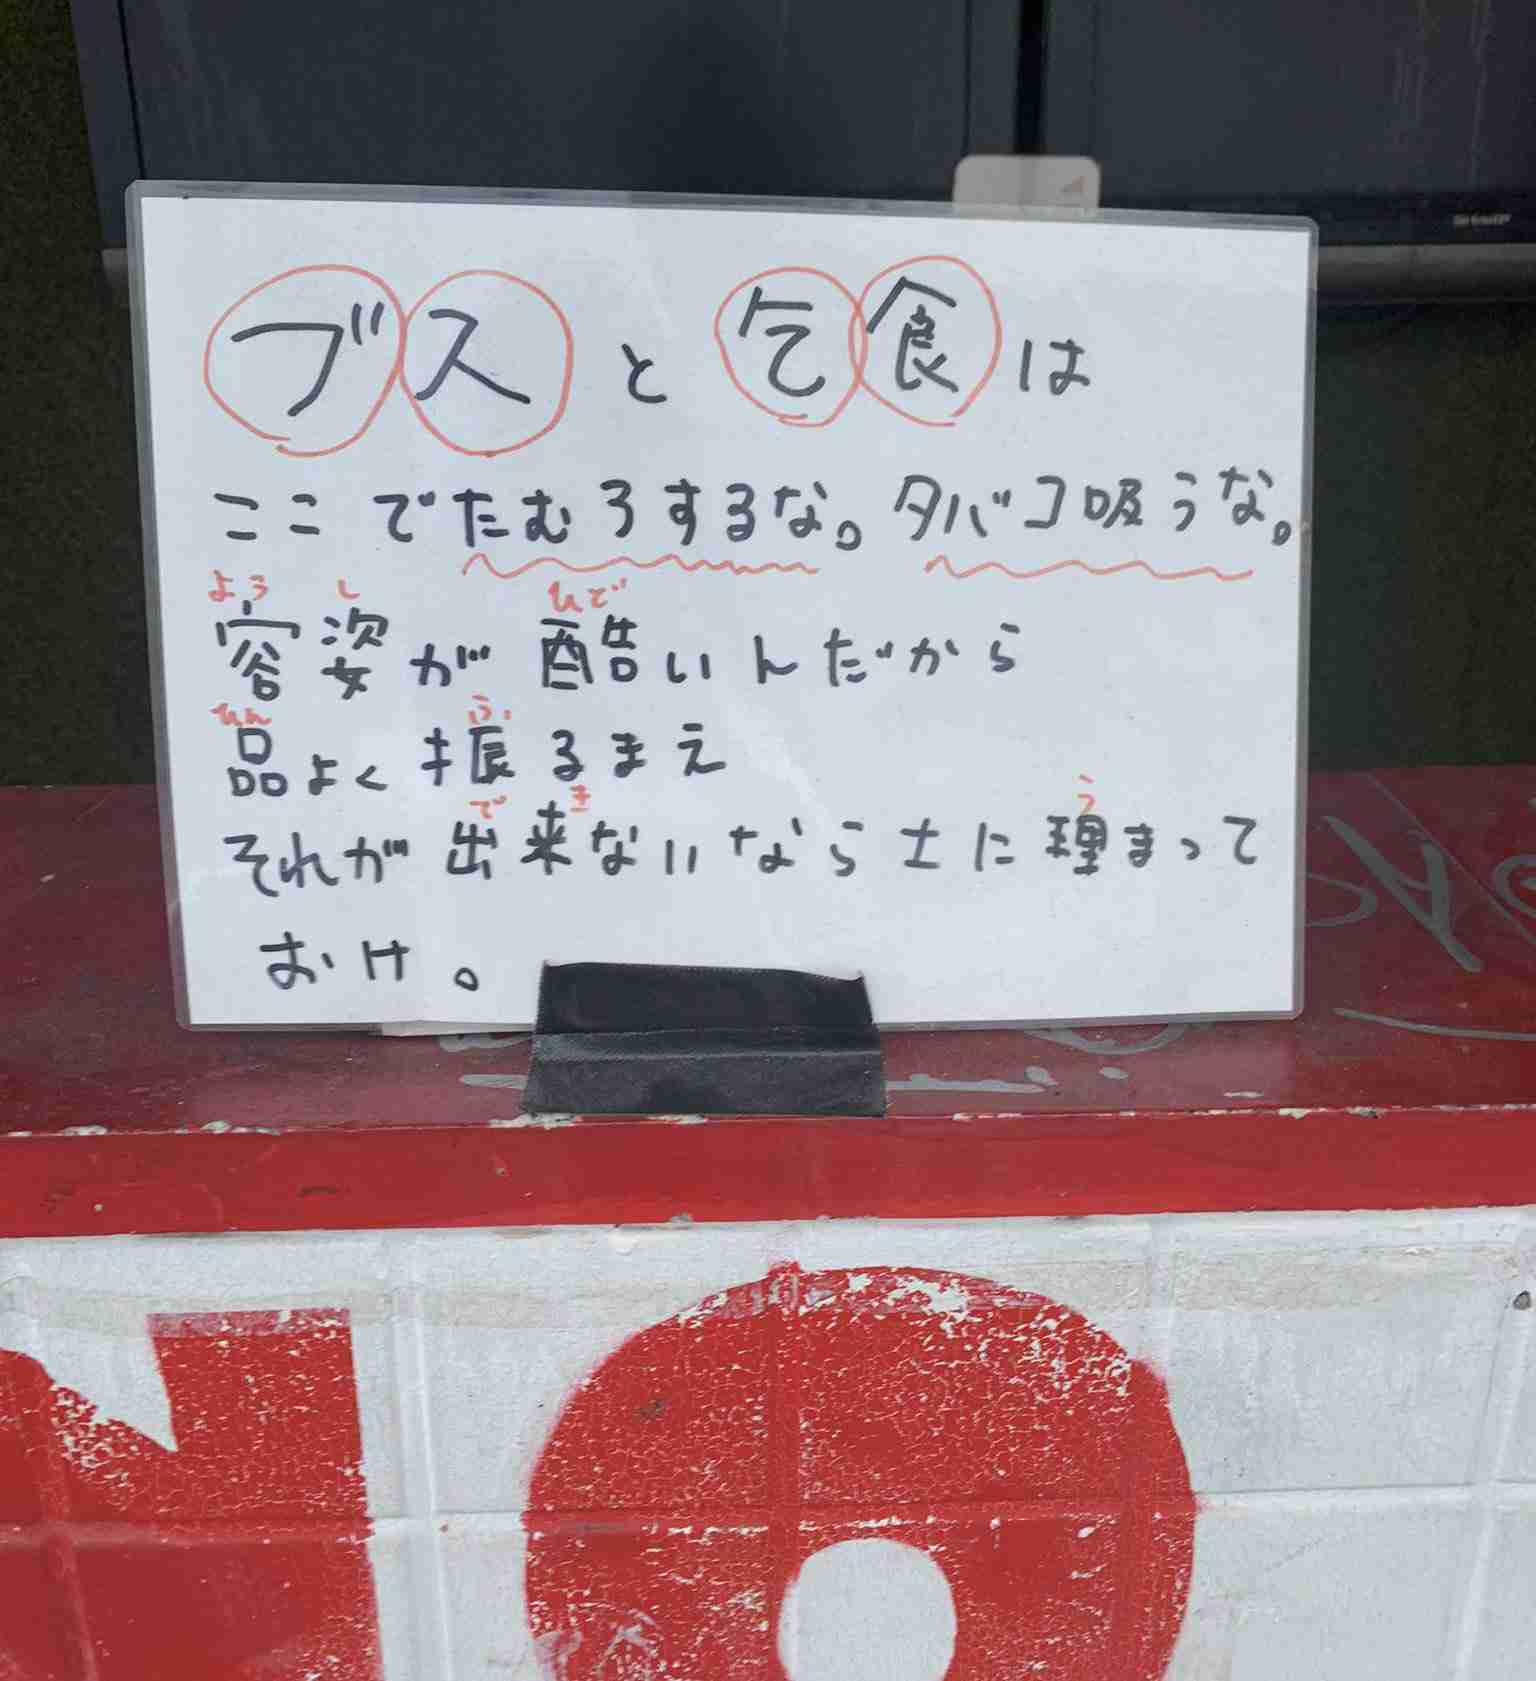 ブスと乞食は
ここでたむろするな。タバコ吸うな。
よう し ひど
容姿が酷いんだから
ひん ふ
品よく振るまえ
で き う
それが出来ないなら土に理まって
おけ。
SHARP
NO